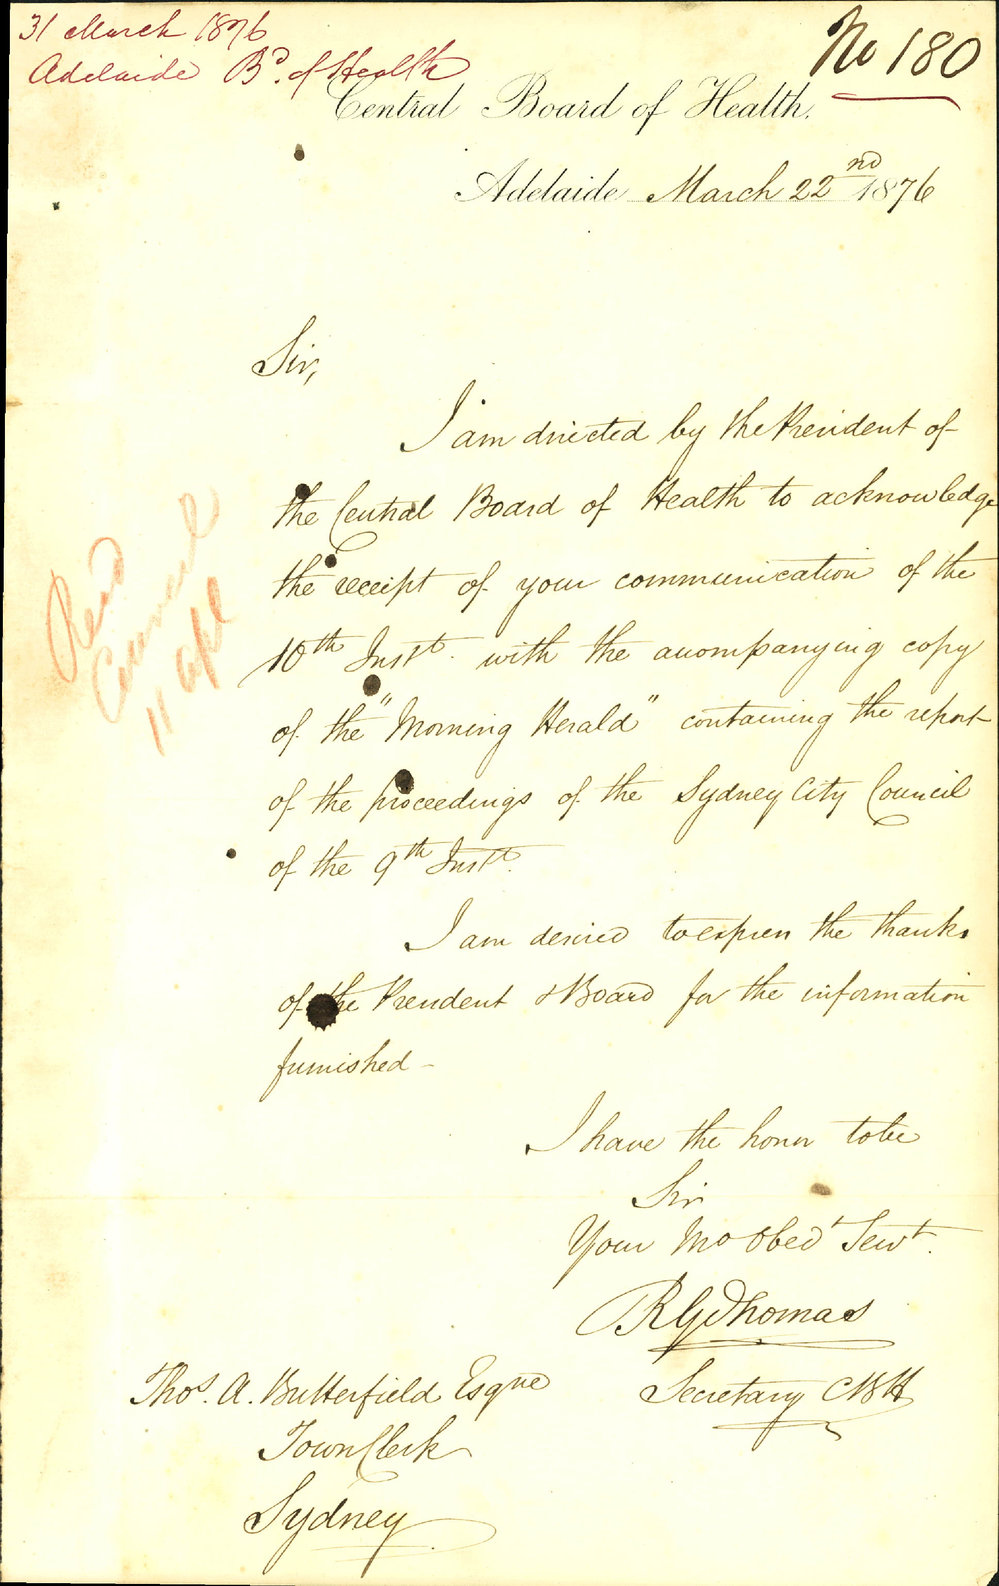 31 March 1876
Adelaide Bd. of Health
No 180
Central Board of Health.
Adelaide March 22nd 1876
Sir,
I am directed by the President of
the Central Board of Health to acknowledge
the receipt of your communication of the
10th Inst. with the accompanying copy
of the "Morning Herald" containing the report
of the proceedings of the Sydney City Council
of the 9th Inst.
Read
Council
11 Apl
I am desired to express the thanks
of the President & Board for the information
furnished -
I have the honor to be
Sir
Your Mo Obedt Servt.
R G Thomas
Secretary CBH
Thos. A. Butterfield Esqre
Town Clerk
Sydney